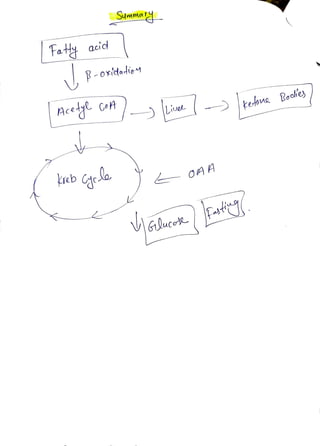 Summary
Fatty acid
β-oxidation
Acetyl CoA → Liver → Ketone Bodies
Kreb Cycle ← OAA
↓ Glucose Fasting.